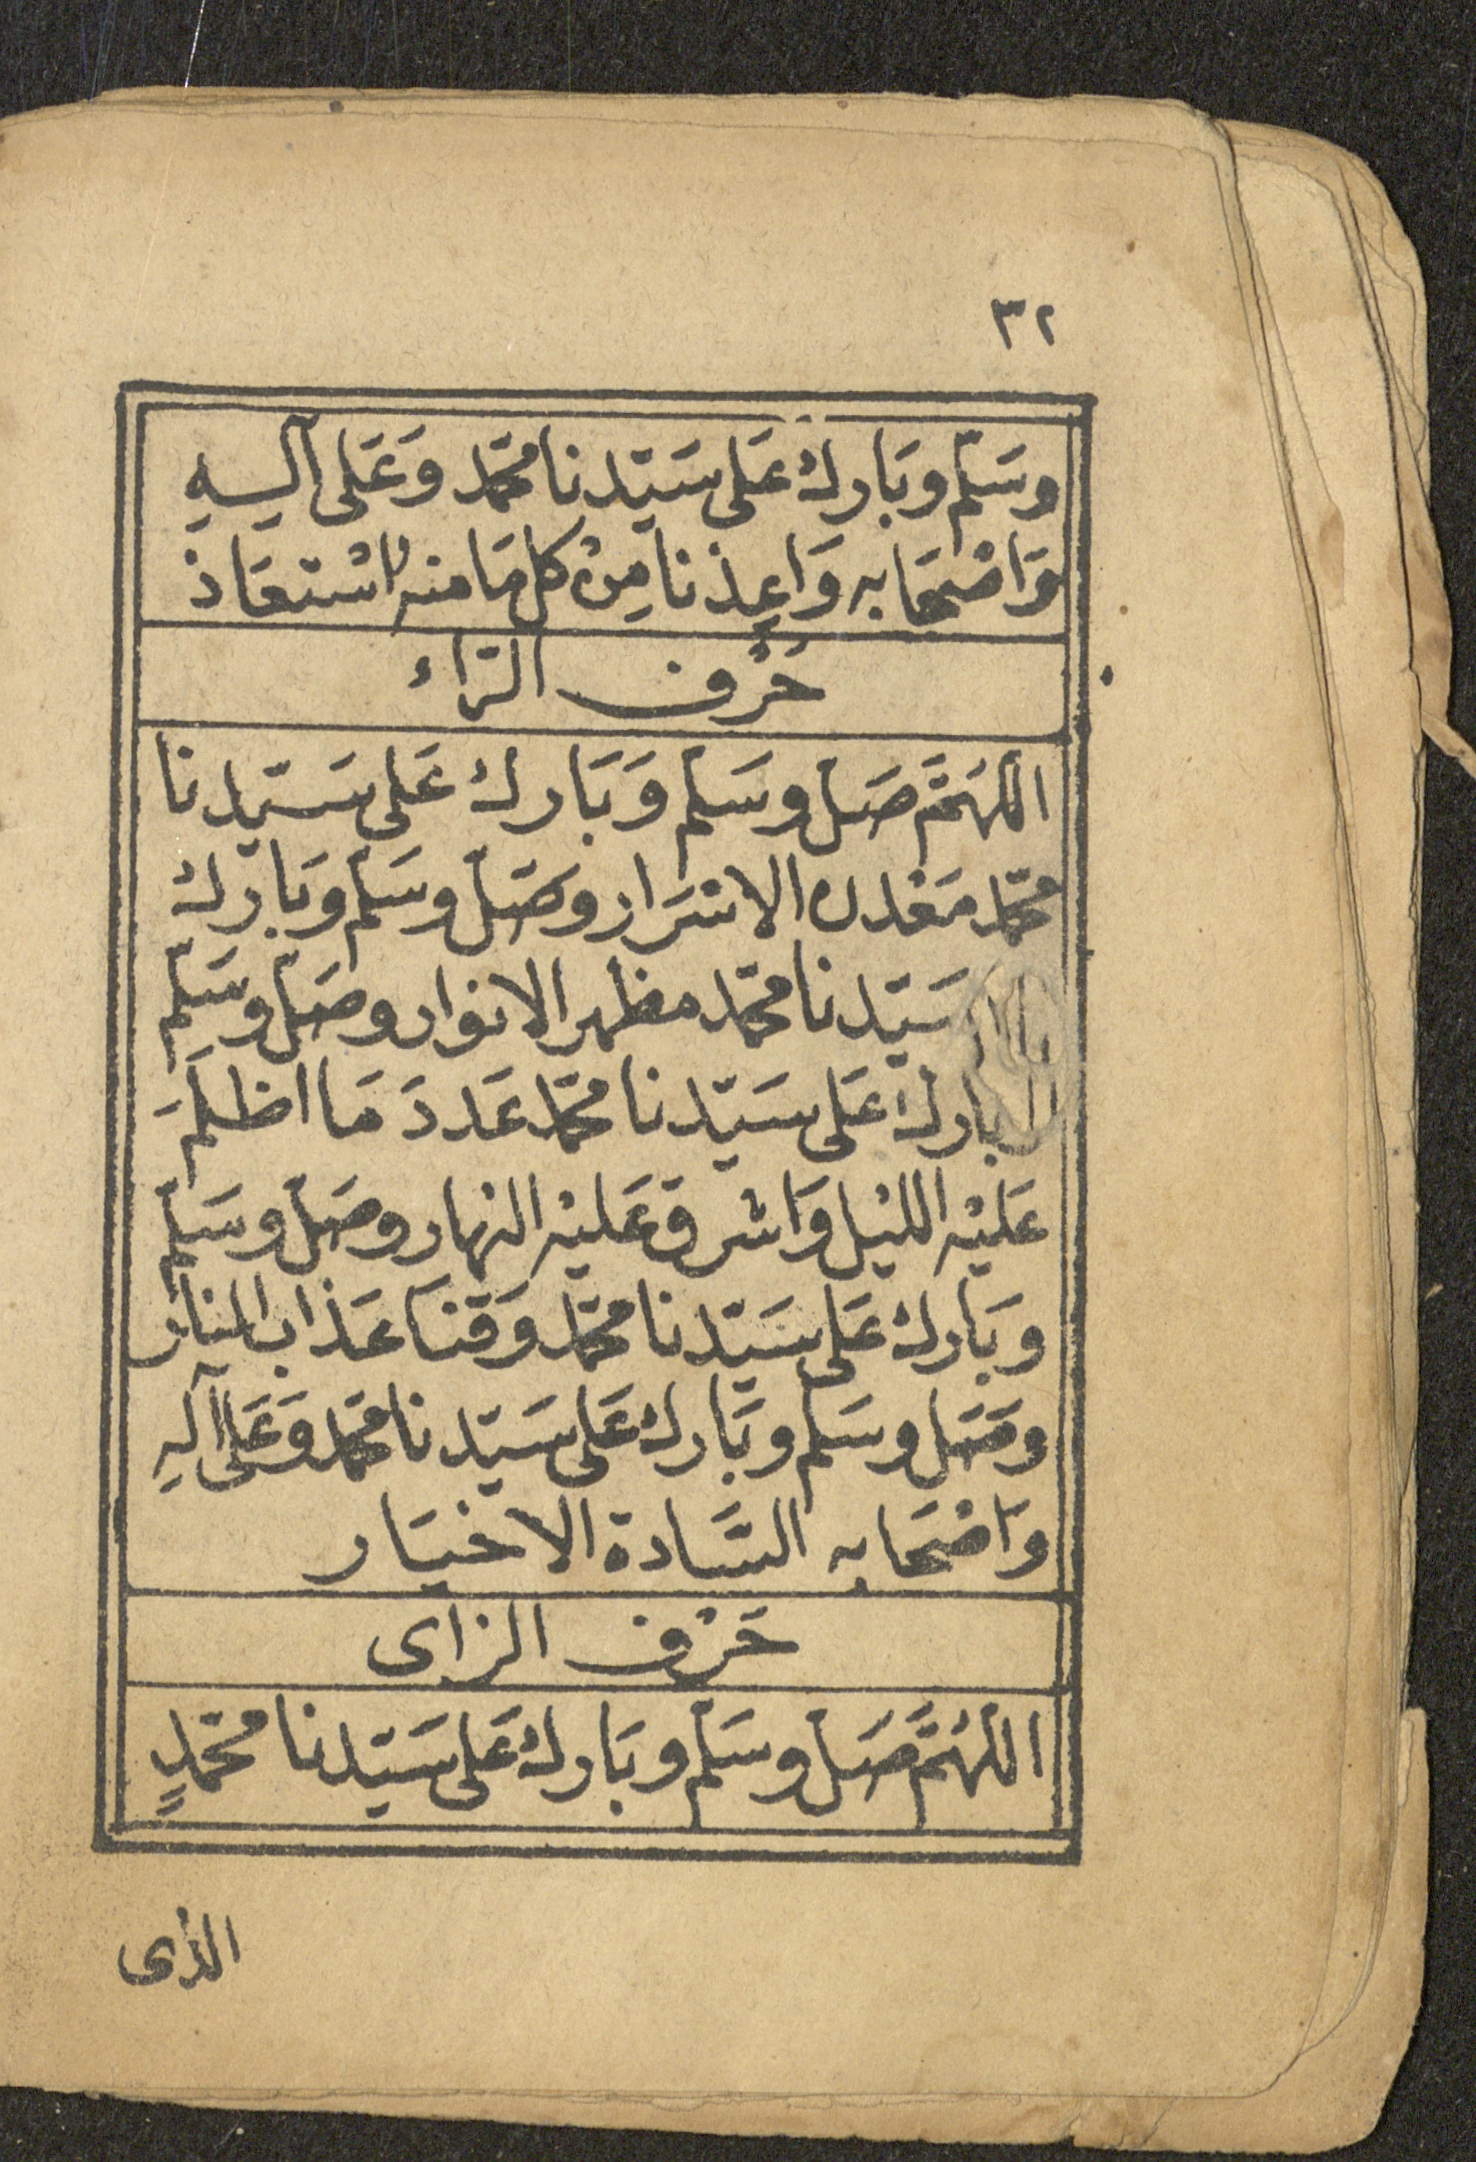 ٣٢
وسَلّم وبَارك عَلى سَيّدنا محمّد وَعَلى آلِهِ
وَاصْحَابه وَاعِذنا مِنْ كل مَا منهُ اسْتعَاذ
حَرْف الرّاء
اللهُمَّ صَل وسَلم وَبَارك عَلى سَيّدنا
محمّد مَعْدن الاسْرَار وصَلّ وسَلم وَبَارك
سَيّدنا محمّد مظهر الانوار وصَلّ وسَلّم
بارك عَلى سَيّدنا محمّد عَددَ مَا اظلَمَ
عَليْه الليْل وَاشرق عَليْه النهار وصَلّ وسَلّم
وبَارك عَلى سَيّدنا محمّد وَقنَا عَذاب النار
وصَل وسَلم وبَارك عَلى سَيّدنا محمّد وَعَلى آلهِ
وَاصْحَابه السَّادة الاخيَار
حَرْف الزاى
اللهُمَّ صَل وسَلم وبَارك عَلى سَيّدنا محمّدٍ
الذى